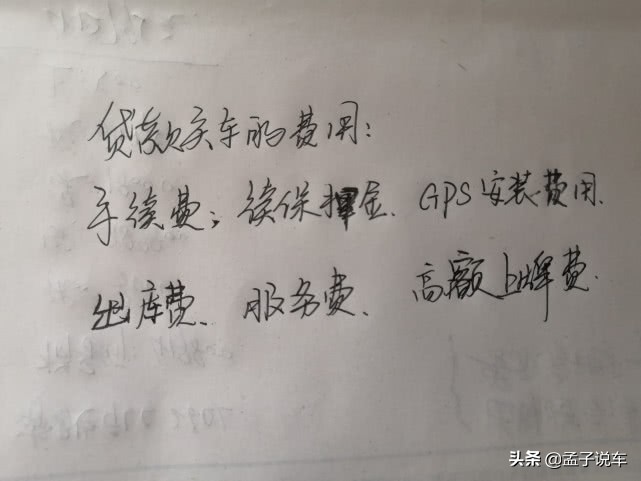 贷款买车的费用:
手续费;续保押金、GPS安装费用、
出库费、服务费、高额上牌费.
头条 @孟子说车